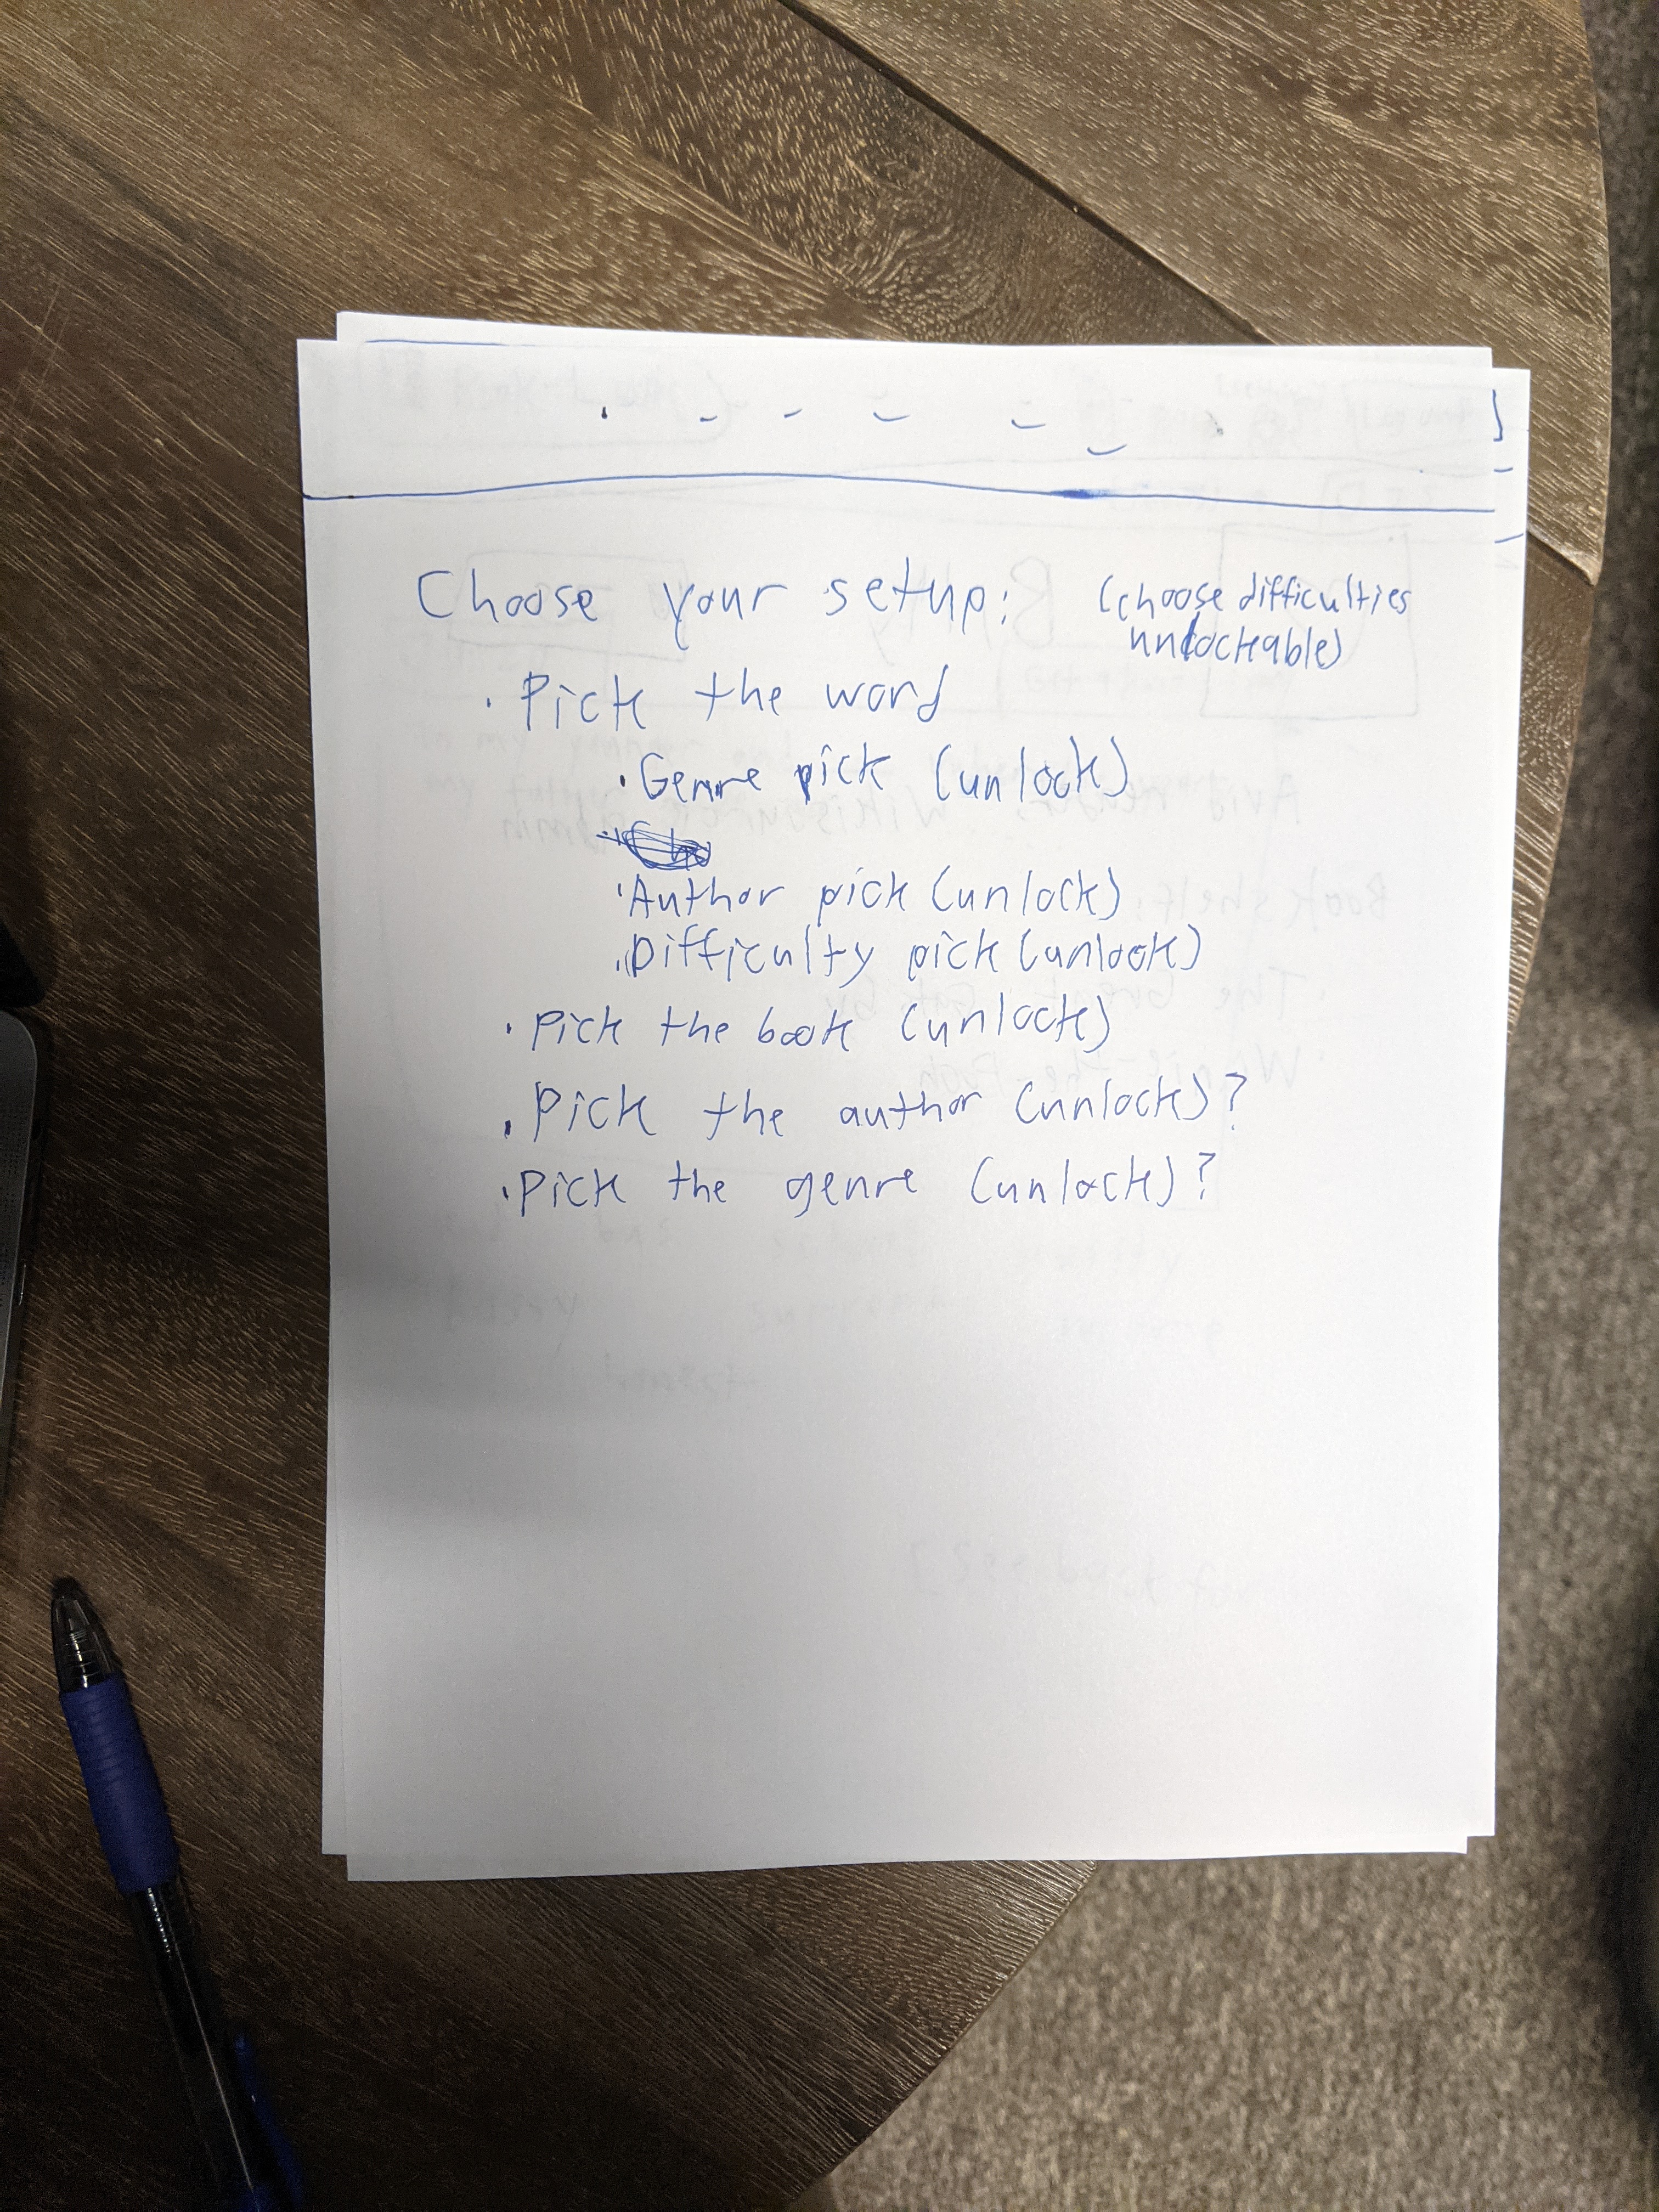 Choose your setup: (choose difficulties
unlockable)
· Pick the word
· Genre pick (unlock)
· Author pick (unlock)
· Difficulty pick (unlock)
· Pick the book (unlock)
· Pick the author (unlock)?
· Pick the genre (unlock)?